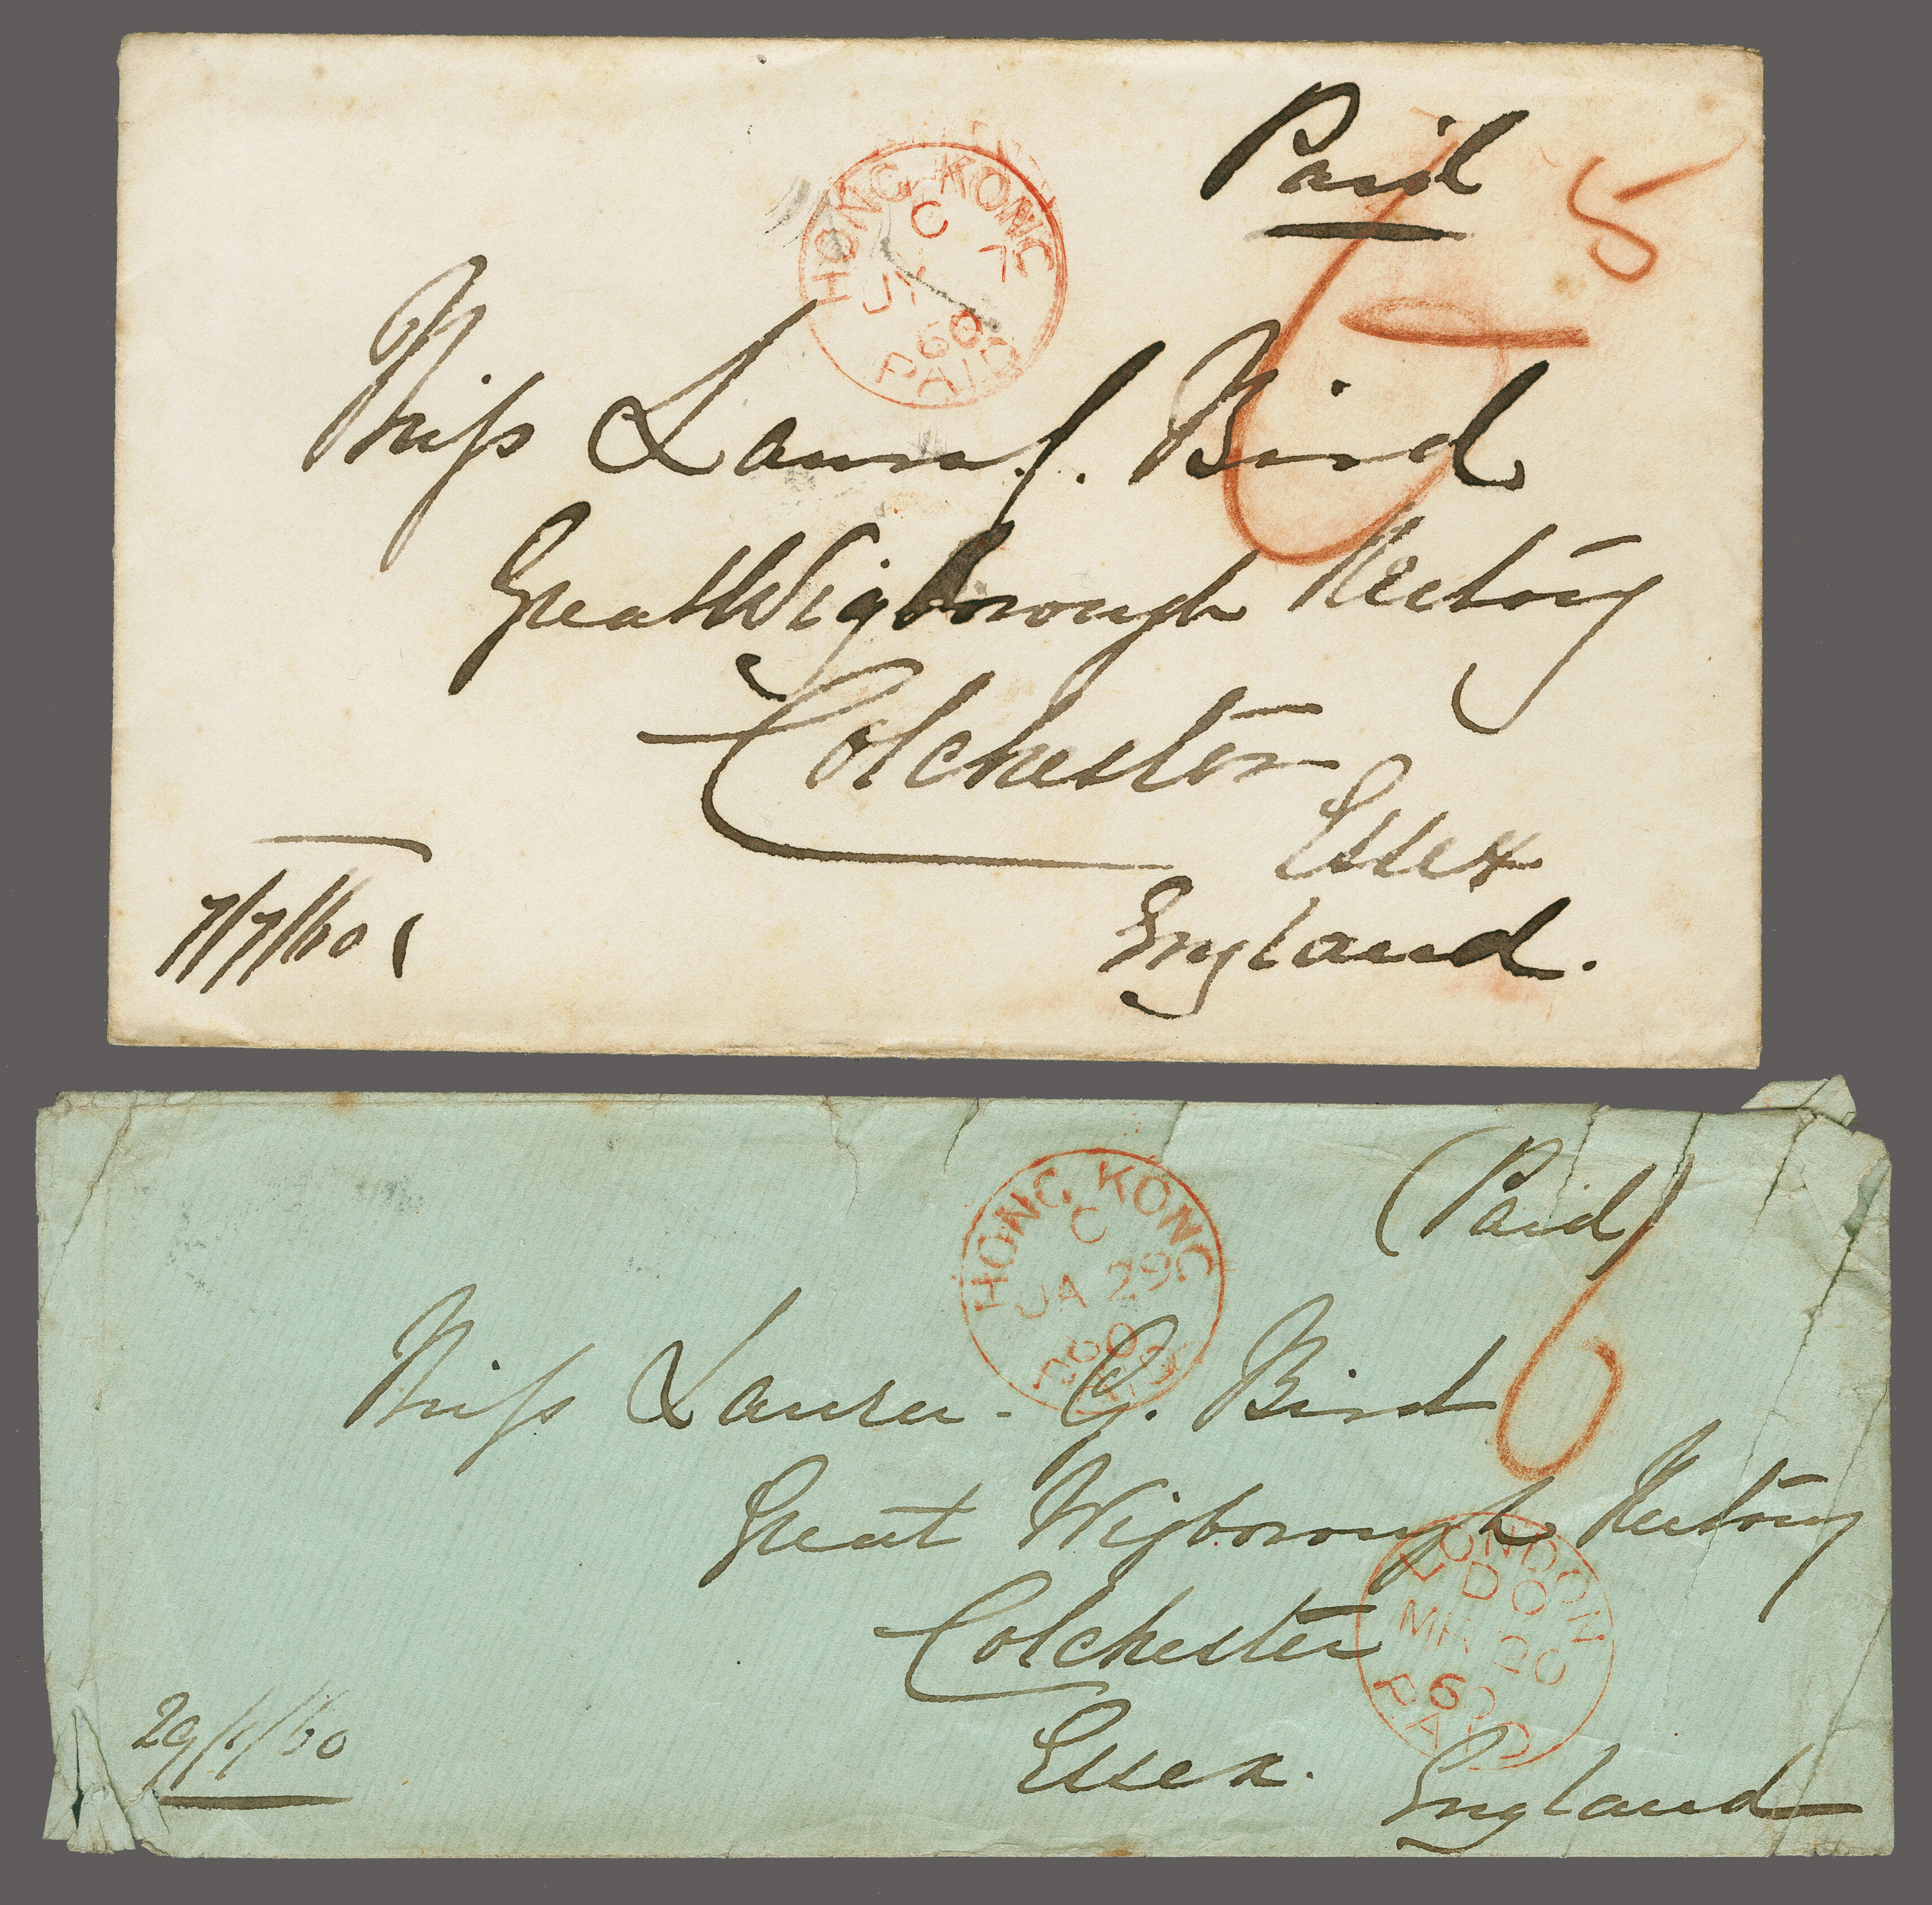 Paid
5
HONG KONG
C
JY 7
60
PAID
Miss Laura J. Bird
Great Wigborough Rectory
Colchester
Essex
England.
7/7/60
(Paid)
6
HONG KONG
C
JA 29
60
PAID
Miss Laura - G. Bird
Great Wigborough Rectory
Colchester
Essex.
England
29/1/60
LONDON
MR 20
60
PAID